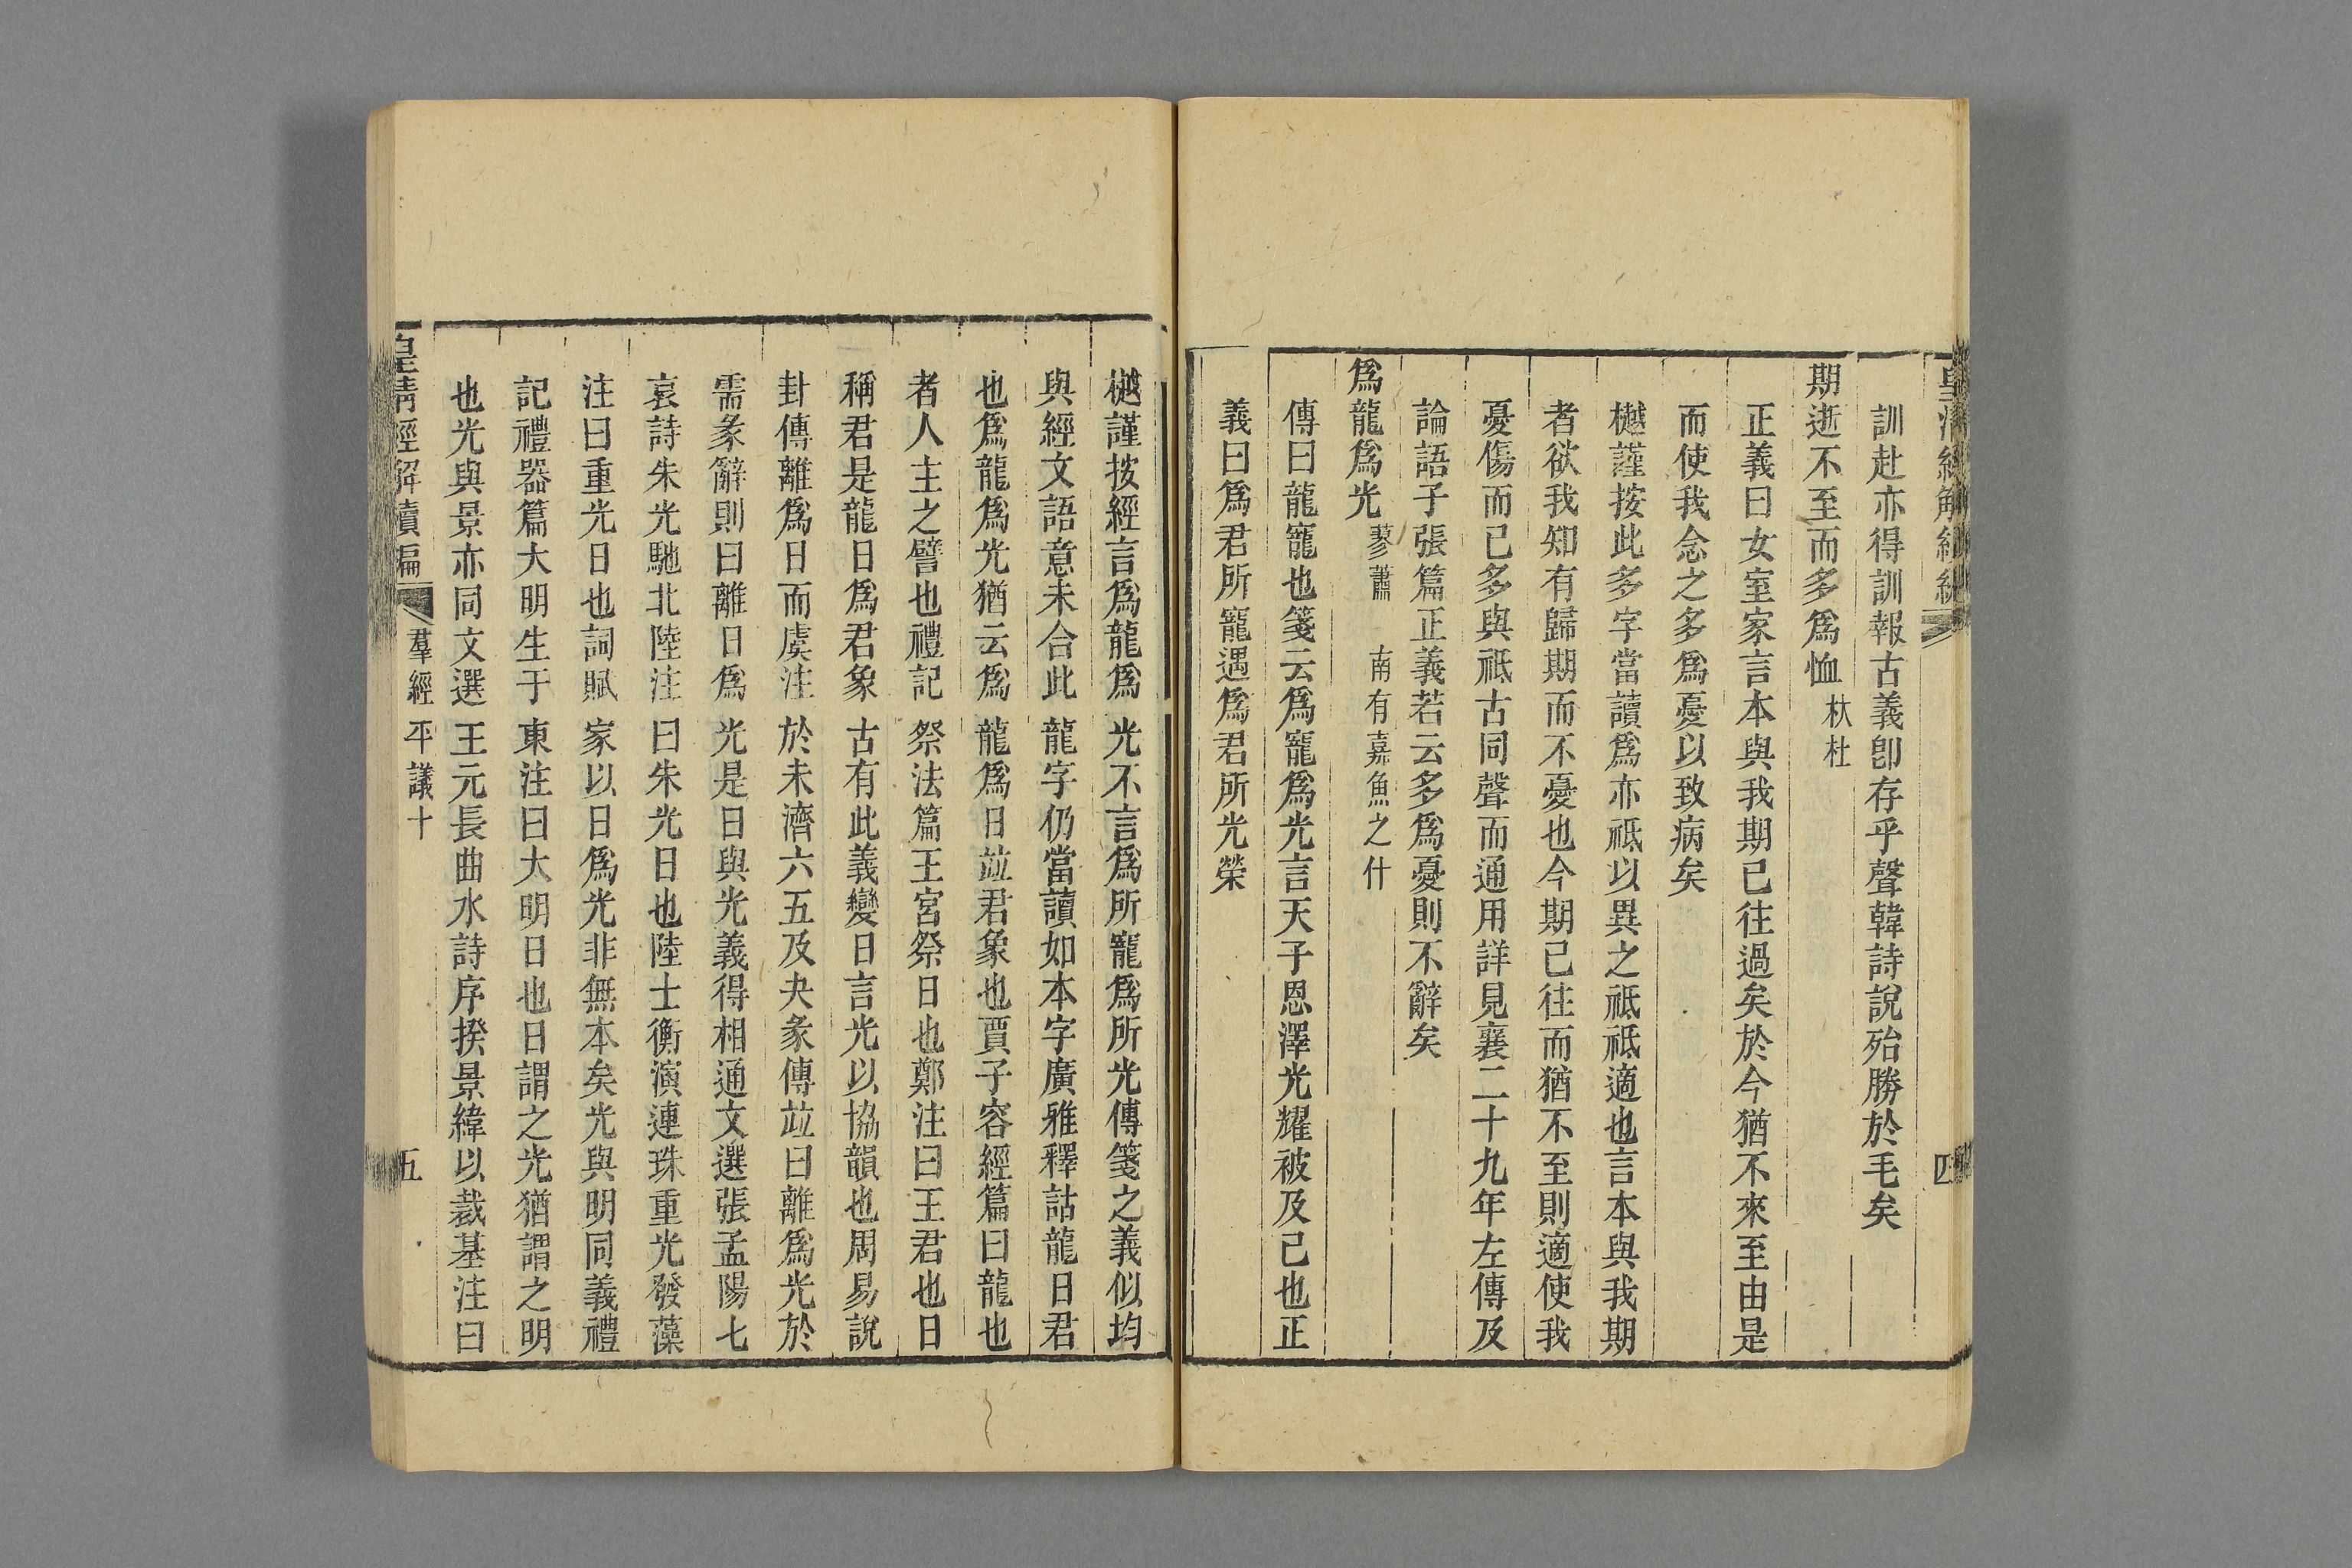 訓赴亦得訓報古義卽存乎聲韓詩說殆勝於毛矣
期逝不至而多爲恤 杕杜
正義曰女室家言本與我期已往過矣於今猶不來至由是
而使我念之多爲憂以致病矣
樾謹按此多字當讀爲亦祗以異之祗祗適也言本與我期
者欲我知有歸期而不憂也今期已往而猶不至則適使我
憂傷而已多與祗古同聲而通用詳見襄二十九年左傳及
論語子張篇正義若云多爲憂則不辭矣
爲龍爲光 蓼蕭 南有嘉魚之什
傳曰龍寵也箋云爲寵爲光言天子恩澤光耀被及己也正
義曰爲君所寵遇爲君所光榮
樾謹按經言爲龍爲光不言爲所寵爲所光傳箋之義似均
與經文語意未合此龍字仍當讀如本字廣雅釋詁龍日君
也爲龍爲光猶云爲龍爲日竝君象也賈子容經篇曰龍也
者人主之譬也禮記祭法篇王宮祭日也鄭注曰王君也日
稱君是龍日爲君象古有此義變日言光以協韻也周易說
卦傳離爲日而虞注於未濟六五及夬彖傳竝曰離爲光於
需彖辭則曰離日爲光是日與光義得相通文選張孟陽七
哀詩朱光馳北陸注曰朱光日也陸士衡演連珠重光發藻
注曰重光日也詞賦家以日爲光非無本矣光與明同義禮
記禮器篇大明生于東注曰大明日也日謂之光猶謂之明
也光與景亦同文選王元長曲水詩序揆景緯以裁基注曰
皇淸經解續編 羣經平議十 五